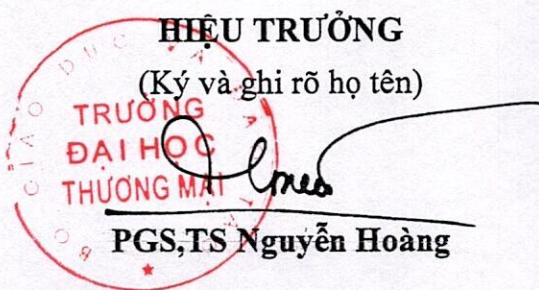 HIỆU TRƯỞNG
(Ký và ghi rõ họ tên)
TRƯỜNG
ĐẠI HỌC
THƯƠNG MẠI
PGS,TS Nguyễn Hoàng